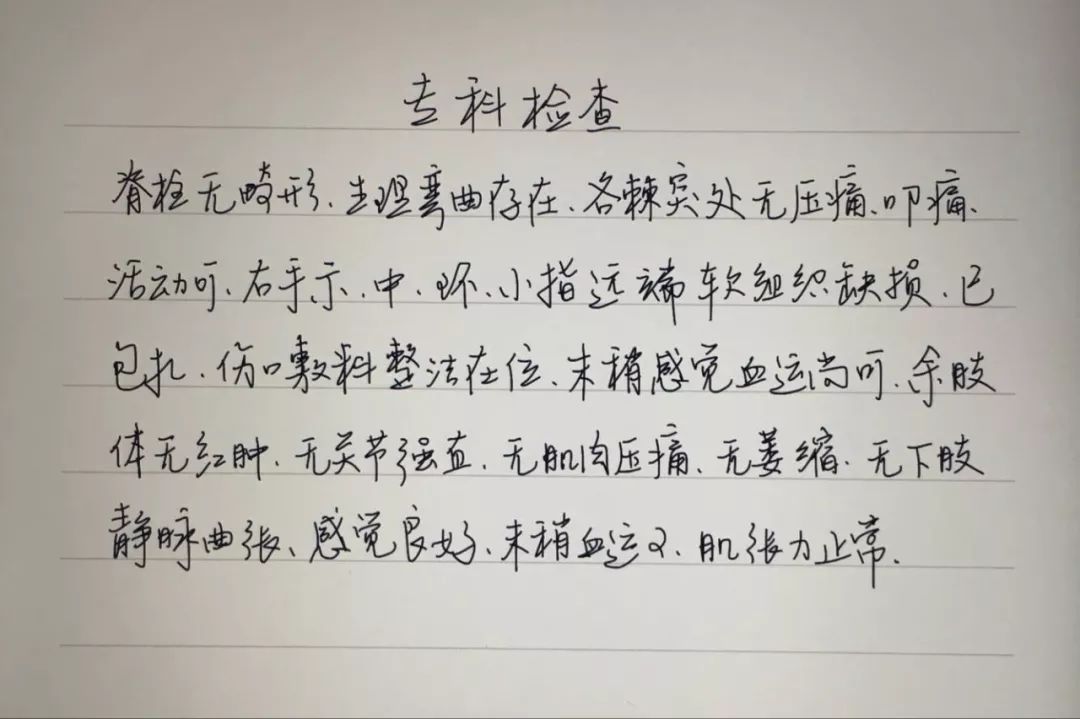 专科检查
脊柱无畸形、生理弯曲存在、各棘突处无压痛、叩痛、
活动可、右手示、中、环、小指远端软组织缺损、已
包扎、伤口敷料整洁在位、末稍感觉血运尚可、余肢
体无红肿、无关节强直、无肌肉压痛、无萎缩、无下肢
静脉曲张、感觉良好、末稍血运、肌张力正常.